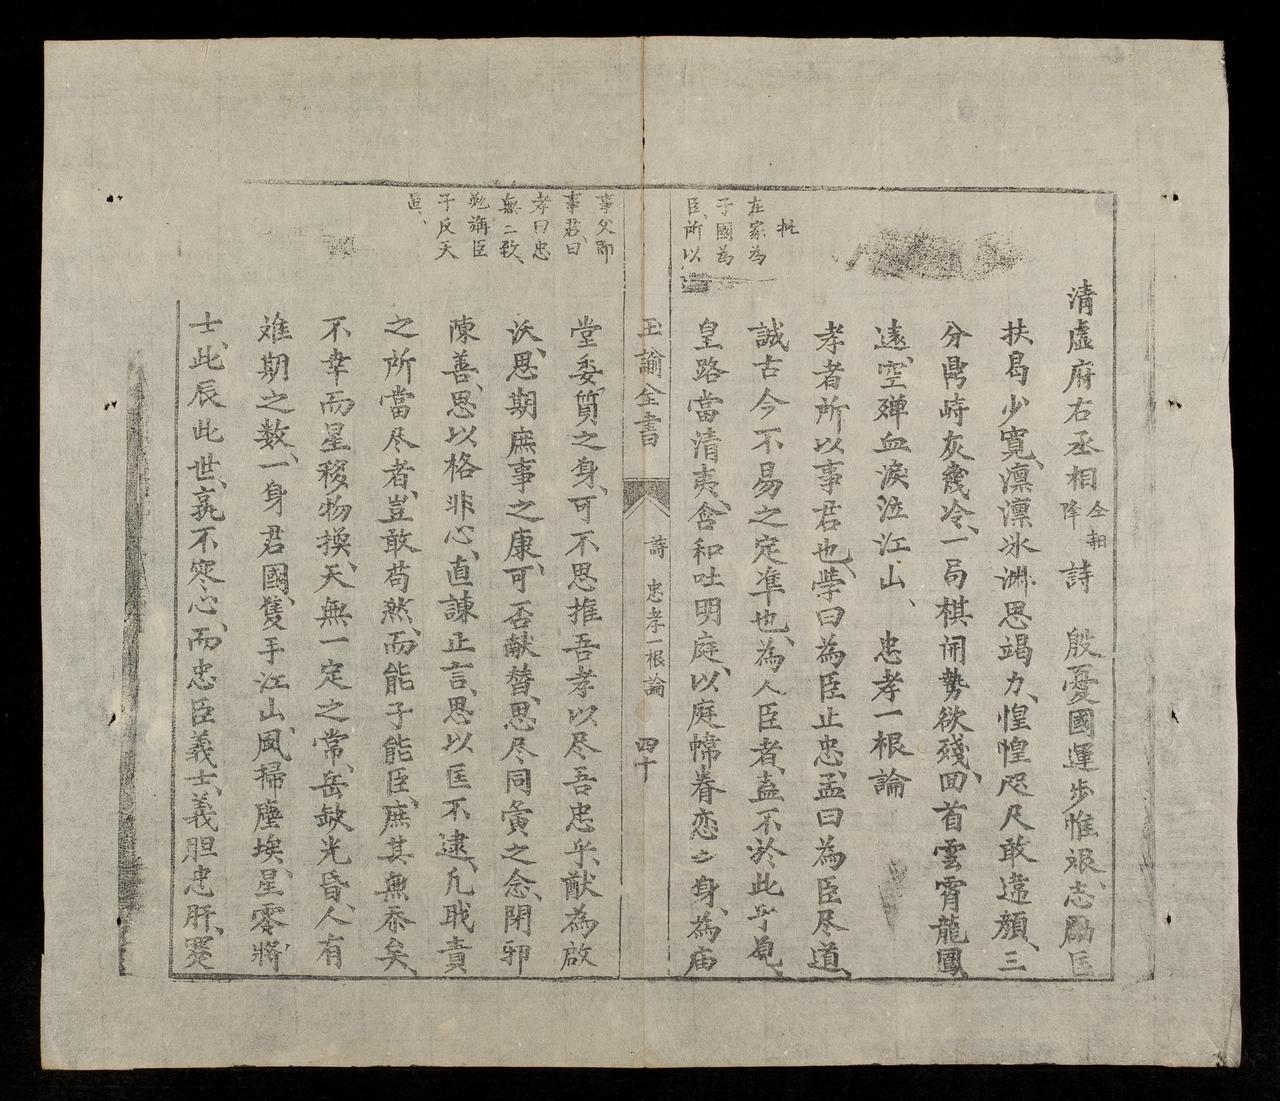 清虛府右丞相仝前降詩　殷憂國運步惟艰、志勵匡
扶曷少寬、凛凛氷淵思竭力、惶惶咫尺敢違顏、三
分鼎峙灰幾冷、一局棋開势欲殘、囬首雲霄龍鳳
遠、空殫血淚泣江山、　忠孝一根論
孝者所以事君也、學曰為臣止忠、孟曰為臣尽道、
誠古今不易之定凖也、為人臣者、盍不於此乎見、
皇路當清夷、含和吐明庭、以庭幃眷恋之身、為庙
批
在家為
子國為
臣、所以
玉諭全書　詩　忠孝一根論　四十
事父即
事君、曰
孝曰忠
無二致、
勉謫臣
子反天
堂委質之身、可不思推吾孝以尽吾忠乎、猷為啟
沃、思期庶事之康、可否献替、思尽同寅之念、閉邪
陳善、思以格非心、直諫止言、思以匡不逮、凡戝責
之所當尽者、豈敢苟然、而能子能臣、庶其無忝矣、
不幸而星移物換、天無一定之常、岳缺光昏、人有
难期之数、一身君國、隻手江山、風掃塵埃、星零將
士、此辰此世、孰不寒心、而忠臣義士、義胆忠肝、寔